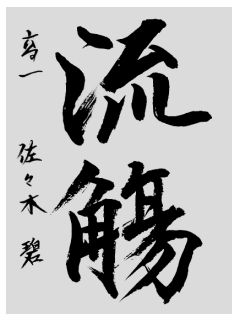 流觴
高一 佐々木 碧